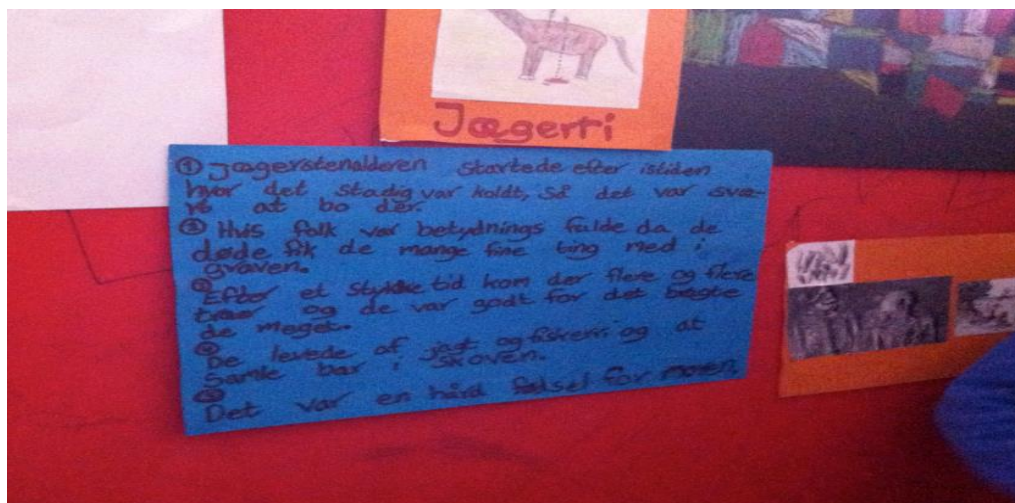 Jægerri
① Jægerstenalderen startede efter istiden
hvor det stadig var koldt, så det var svæ-
rt at bo der.
③ Hvis folk var betydnings fulde da de
døde fik de mange fine ting med i
graven.
Efter et stykke tid kom der flere og flere
træer og de var godt for det
de meget.
De levede af jagt og fiskerri og at
samle bær i skoven.
Det var en hård fødsel for moren.